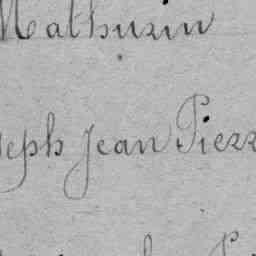 Mathurin
seph Jean Pierr